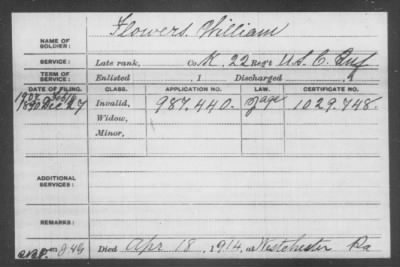 NAME OF SOLDIER: Flowers, William
SERVICE: Late rank, Co. K, 22 Reg't U.S.C. Inf
TERM OF SERVICE: Enlisted , 1 Discharged , 1
DATE OF FILING. CLASS. APPLICATION NO. LAW. CERTIFICATE NO.
1907 Feb
1890 Dec 27 Invalid, 987.440. g age 1029.748.
Widow,
Minor,
ADDITIONAL SERVICES:
REMARKS:
Died Apr 18, 1914, at Westchester Pa